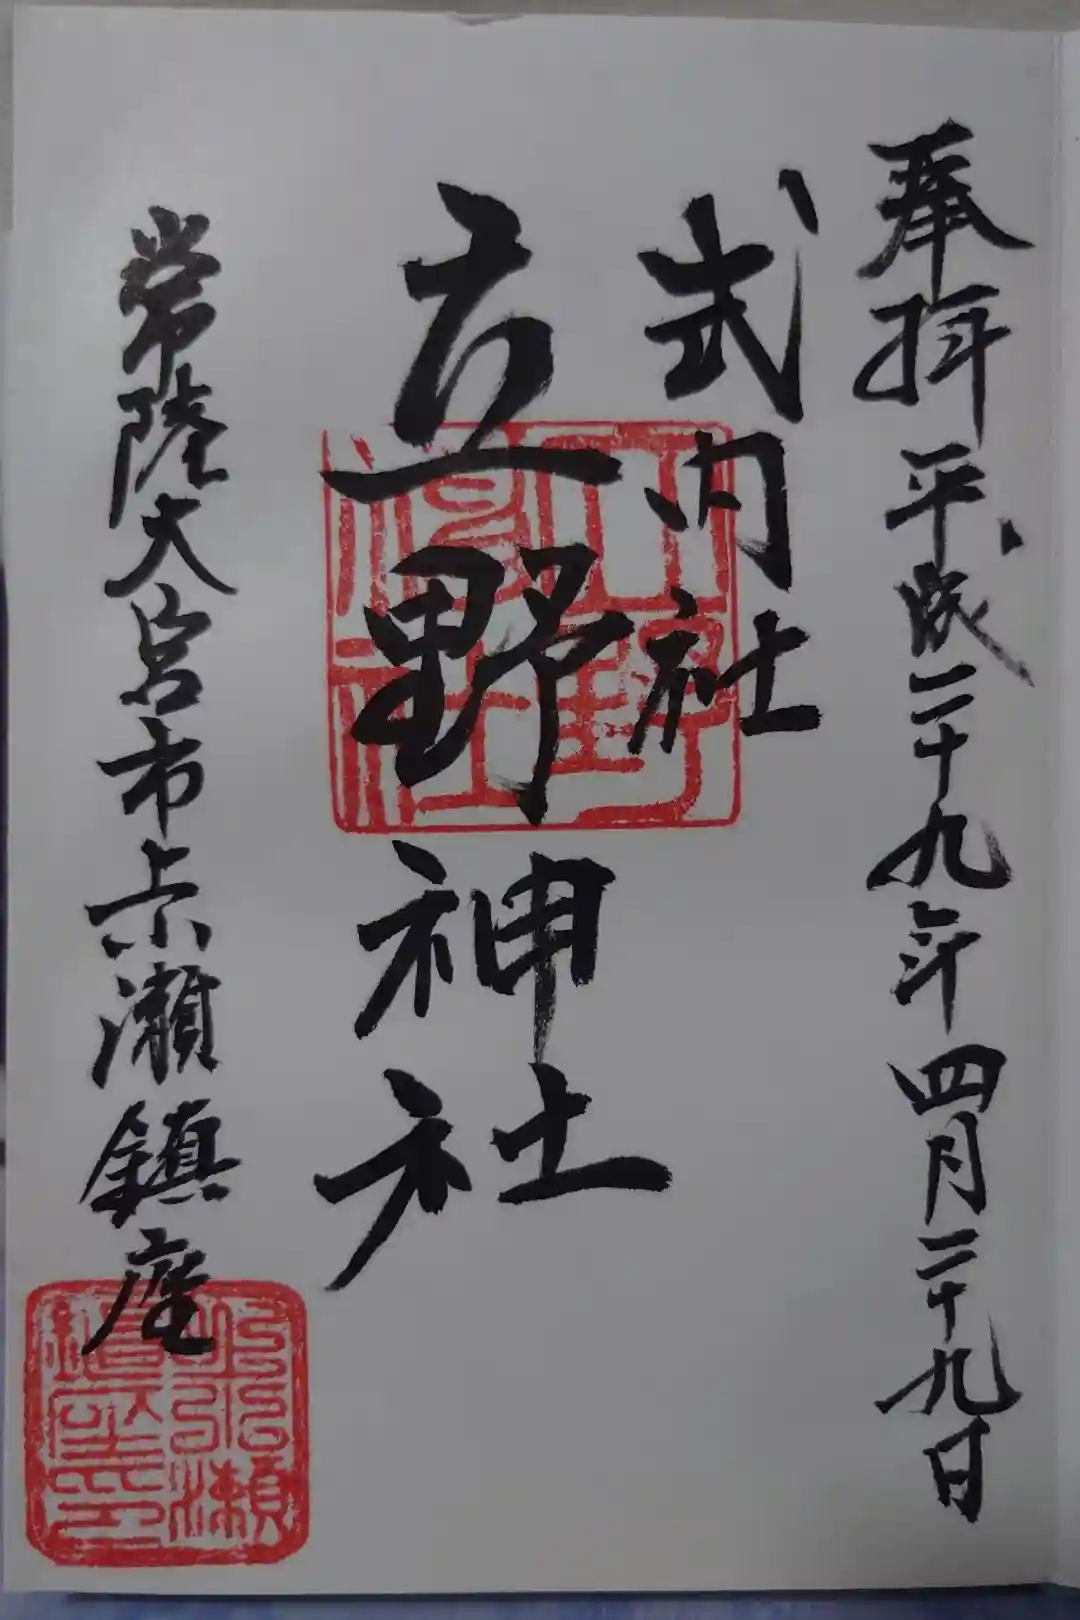 奉拝 平成二十九年四月二十九日
式内社
立野神社
常陸大宮市上小瀬鎮座
立野神社